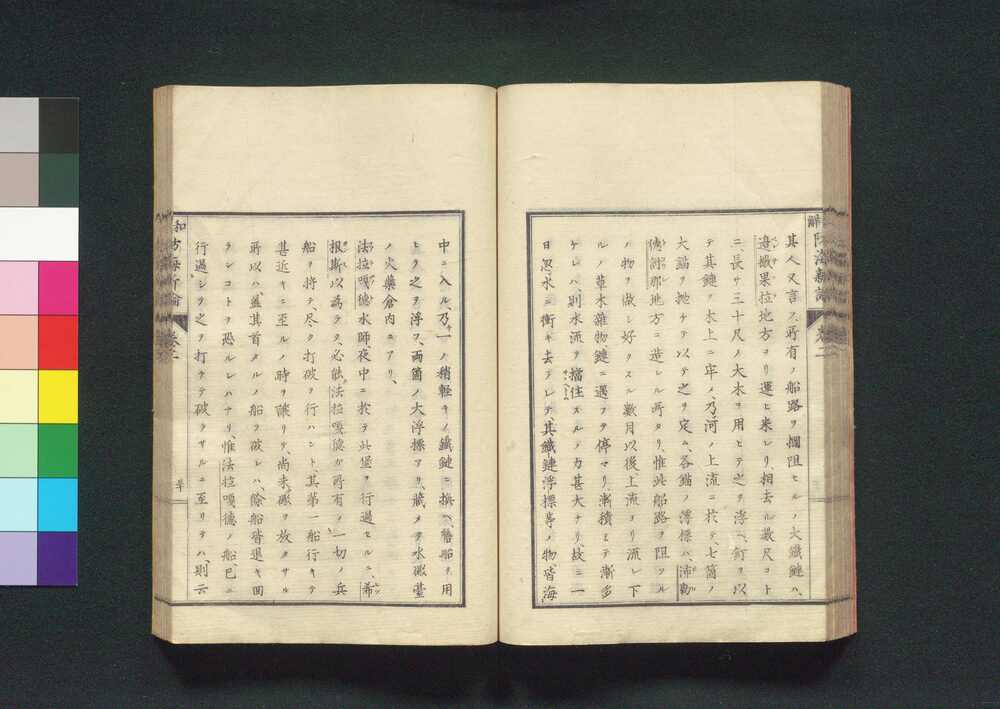 其人又言フ、所有ノ船路ヲ攔阻セルノ大鐵鏈ハ、
邉撒果拉地方ヨリ運ヒ来レリ、相去ル數尺コト
ニ長サ三十尺ノ大木ヲ用ヒテ之ヲ浮ヘ、釘ヲ以
テ其鏈ヲ木上ニ牢ノ、乃河ノ上流ニ於テ、七箇ノ
大錨ヲ抛ケテ以テ之ヲ定ム、各錨ノ浮標ハ沛勒
ノ物ヲ做シ好クスル數月以後上流ヨリ流レ下
ルノ草木雜物、鏈ニ遇ヲ停マリ、漸積ミテ漸多
ケレハ、則水流ヲ擋住スルノカ甚大ナリ、故ニ一
日忽水ニ衝キ去テレテ、其鐵鏈浮標等ノ物皆海
中ニ入ル、乃一ノ稍軽キノ鐵鏈ニ換ヘ、舊船ヲ用
ヒテ之ヲ浮フ、両箇ノ大浮標アリ、藏メテ水礮臺
ノ火藥倉内ニアリ、
法拉嘎德水師、夜中ニ於テ此堡ヲ行過セルニ、希
根斯以為ラク、必能法拉嘎德カ所有ノ一切ノ兵
船ヲ将テ、尽ク打破ヲ行ハント、其第一船行キテ
甚近キニ至ルノ時ヲ誤リテ、尚未礮ヲ放タサル
所以ハ、蓋其首タルノ船ヲ破レハ、餘船皆退キ回
ランコトヲ恐ルレハナリ、惟法拉嘎德ノ船、已ニ
行過シテ之ヲ打チテ破ラサルニ至リテハ、則云